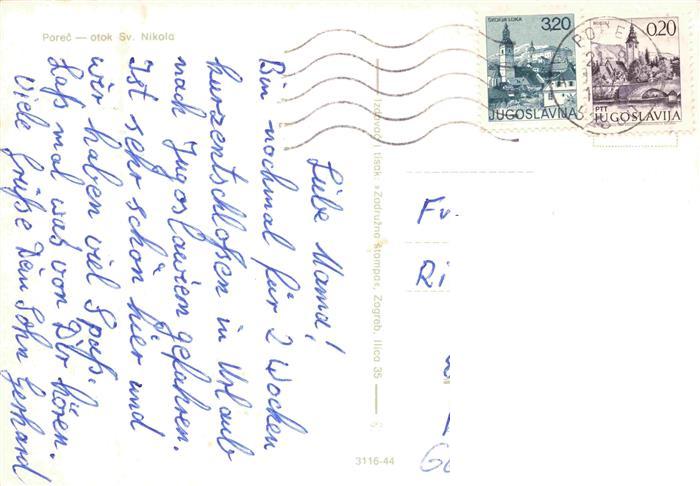 Poreč — otok Sv. Nikola
Liebe Mama!
Bin nochmal für 2 Wochen
kurzentschloßen in Urlaub
nach Jugoslawien gefahren.
Ist sehr schön hier und
wir haben viel Spaß.
Laß mal was von Dir hören.
Viele Grüße Dein Sohn Gerhard
Izdavač i tisak: »Zadružna štampa«, Zagreb, Ilica 35
3116-44
ŠKOFJA LOKA
3,20
JUGOSLAVIJA
BOHINJ
0.20
PTT
JUGOSLAVIJA
Ri